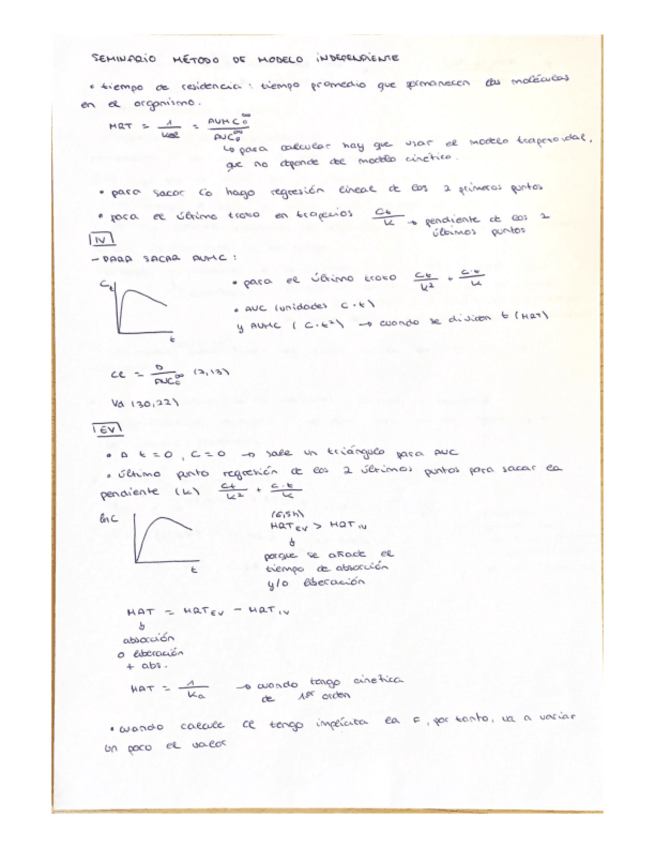 SEMINARIO MÉTODO DE MODELO INDEPENDIENTE
• tiempo de residencia: tiempo promedio que permanecen las moléculas
en el organismo.
MRT = 1/kel = AUMC₀^∞/AUC₀^∞
↳ para calcular hay que usar el modelo trapezoidal,
que no depende del modelo cinético.
• para sacar C0 hago regresión lineal de los 2 primeros puntos
• para el último trozo en trapecios Ct/k → pendiente de los 2
últimos puntos
IV
- PARA SACAR AUMC:
• para el último trozo Ct/k² + C·t/k
• AUC (unidades C·t)
y AUMC (C·t²) → cuando se dividen t (MRT)
Ct
t
Cl = D/AUC₀^∞ (2,13)
Vd (30,22)
EV
• A t=0, C=0 → sale un triángulo para AUC
• último punto regresión de los 2 últimos puntos para sacar la
pendiente (k) Ct/k² + C·t/k
lnC
t
(6,5h)
MRT EV > MRT IV
↓
porque se añade el
tiempo de absorción
y/o liberación
MAT = MRT EV - MRT IV
↓
absorción
o liberación
+ abs.
MAT = 1/ka → cuando tengo cinética
de 1er orden
• cuando calcule Cl tengo implícita la F, por tanto, va a variar
un poco el valor